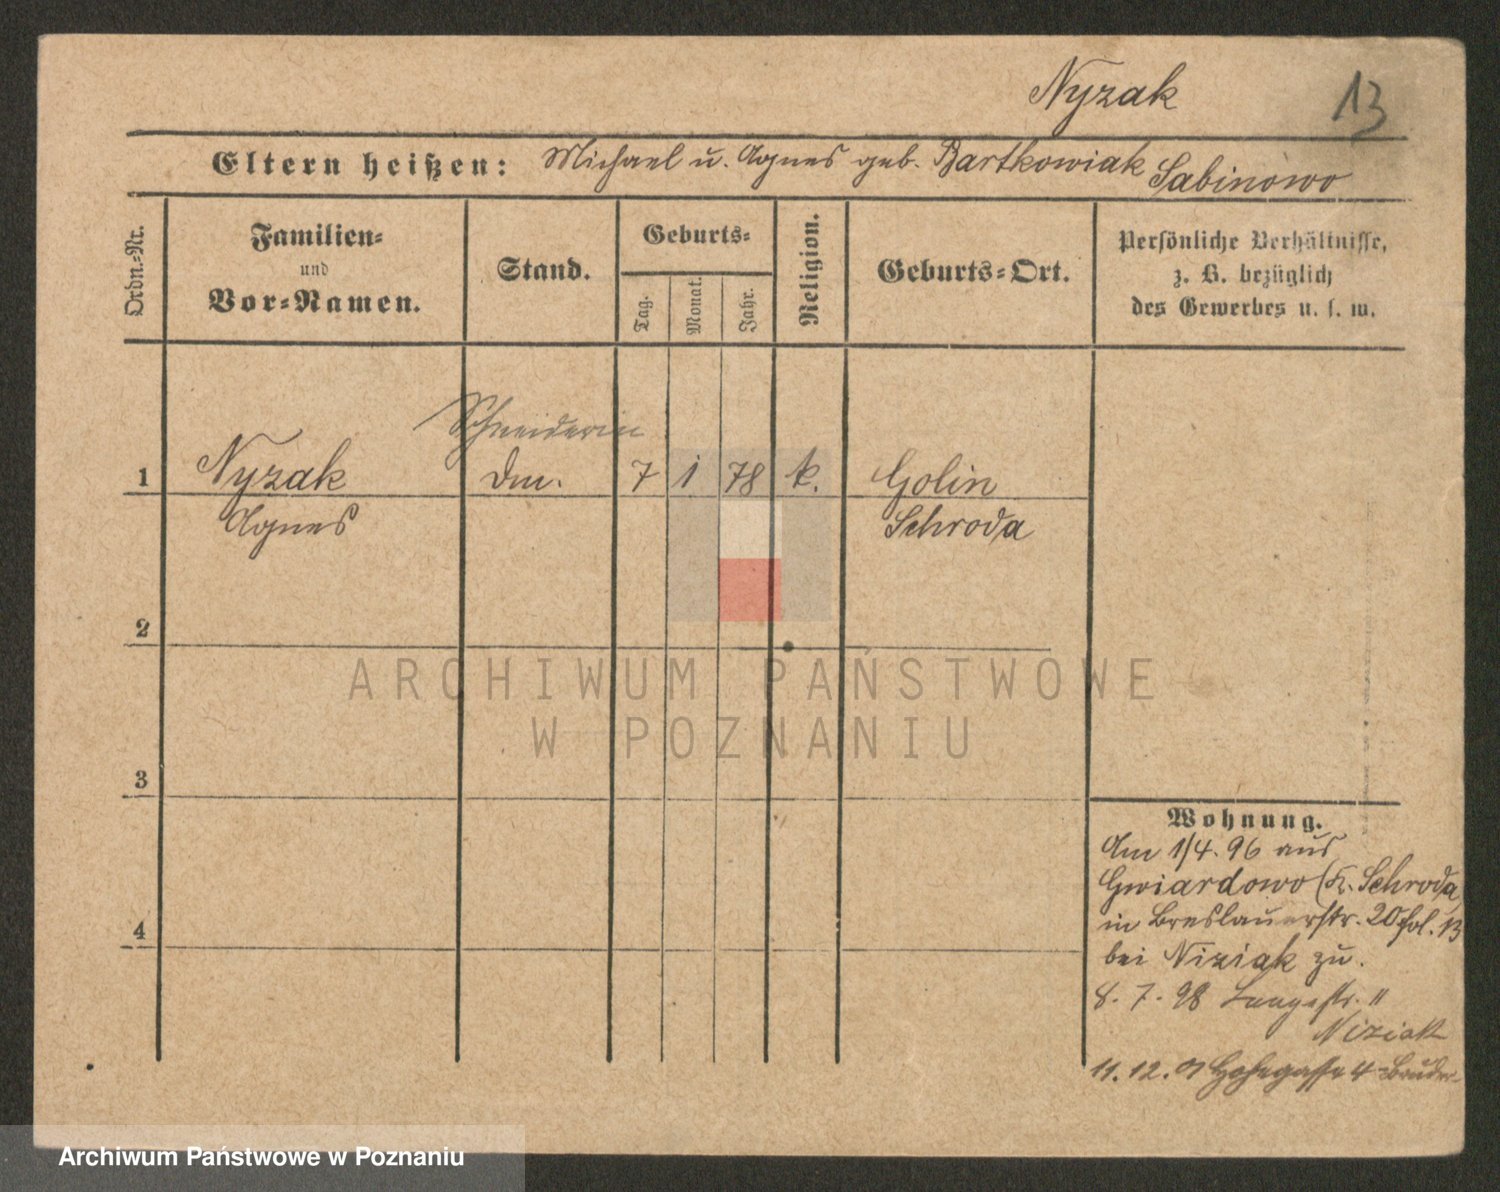 Nyzak 13
Eltern heißen: Michael u. Agnes geb. Bartkowiak Sabinowo
Ordn.-Nr.
Familien-
und
Vor-Namen.
Stand.
Geburts-
Tag.
Monat.
Jahr.
Religion.
Geburts-Ort.
Persönliche Verhältnisse,
z. B. bezüglich
des Gewerbes u. s. w.
Schneiderin
1 Nyzak Dm. 7 1 78 k. Golin
Agnes Schroda
2
3
4
Wohnung.
Am 1/4. 96 aus
Gwiardowo (K. Schroda)
in Breslauerstr. 20 fol. 13
bei Niziak zu.
8. 7. 98 Langestr. 11
Niziak
11. 12. 01 Hohegasse 4 Bruder
ARCHIWUM PAŃSTWOWE
W POZNANIU
Archiwum Państwowe w Poznaniu